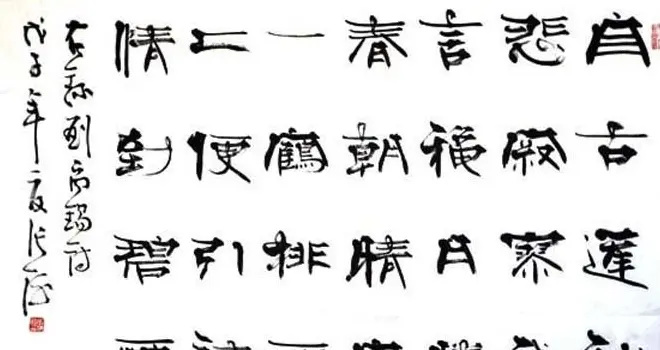 自古逢
悲寂寥
言穐日
春朝晴
一鶴排
上便引
情到碧
右録劉禹錫詩
戊子年夏